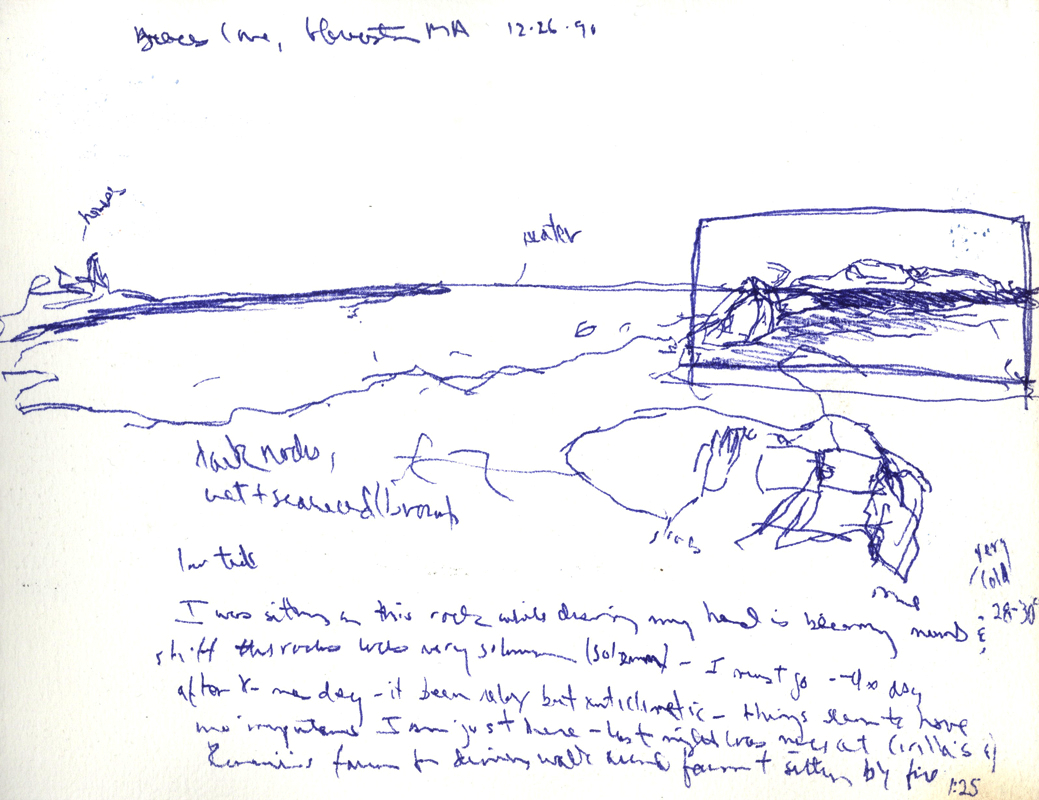 Cove, Gloucester MA 12.26.90
houses
water
dark rocks,
wet + seaweed (brown)
low tide
very
cold
28-30°
I was sitting on this rock while drawing my hand is becoming numb &
stiff this rocks was very solemn (solemn) - I must go - the day
after X-mas day - it been okay but anticlimatic - things seem to have
no importance I am just here - last night was nice at &
farm for dinner walk around farm + sitting by fire
1:25